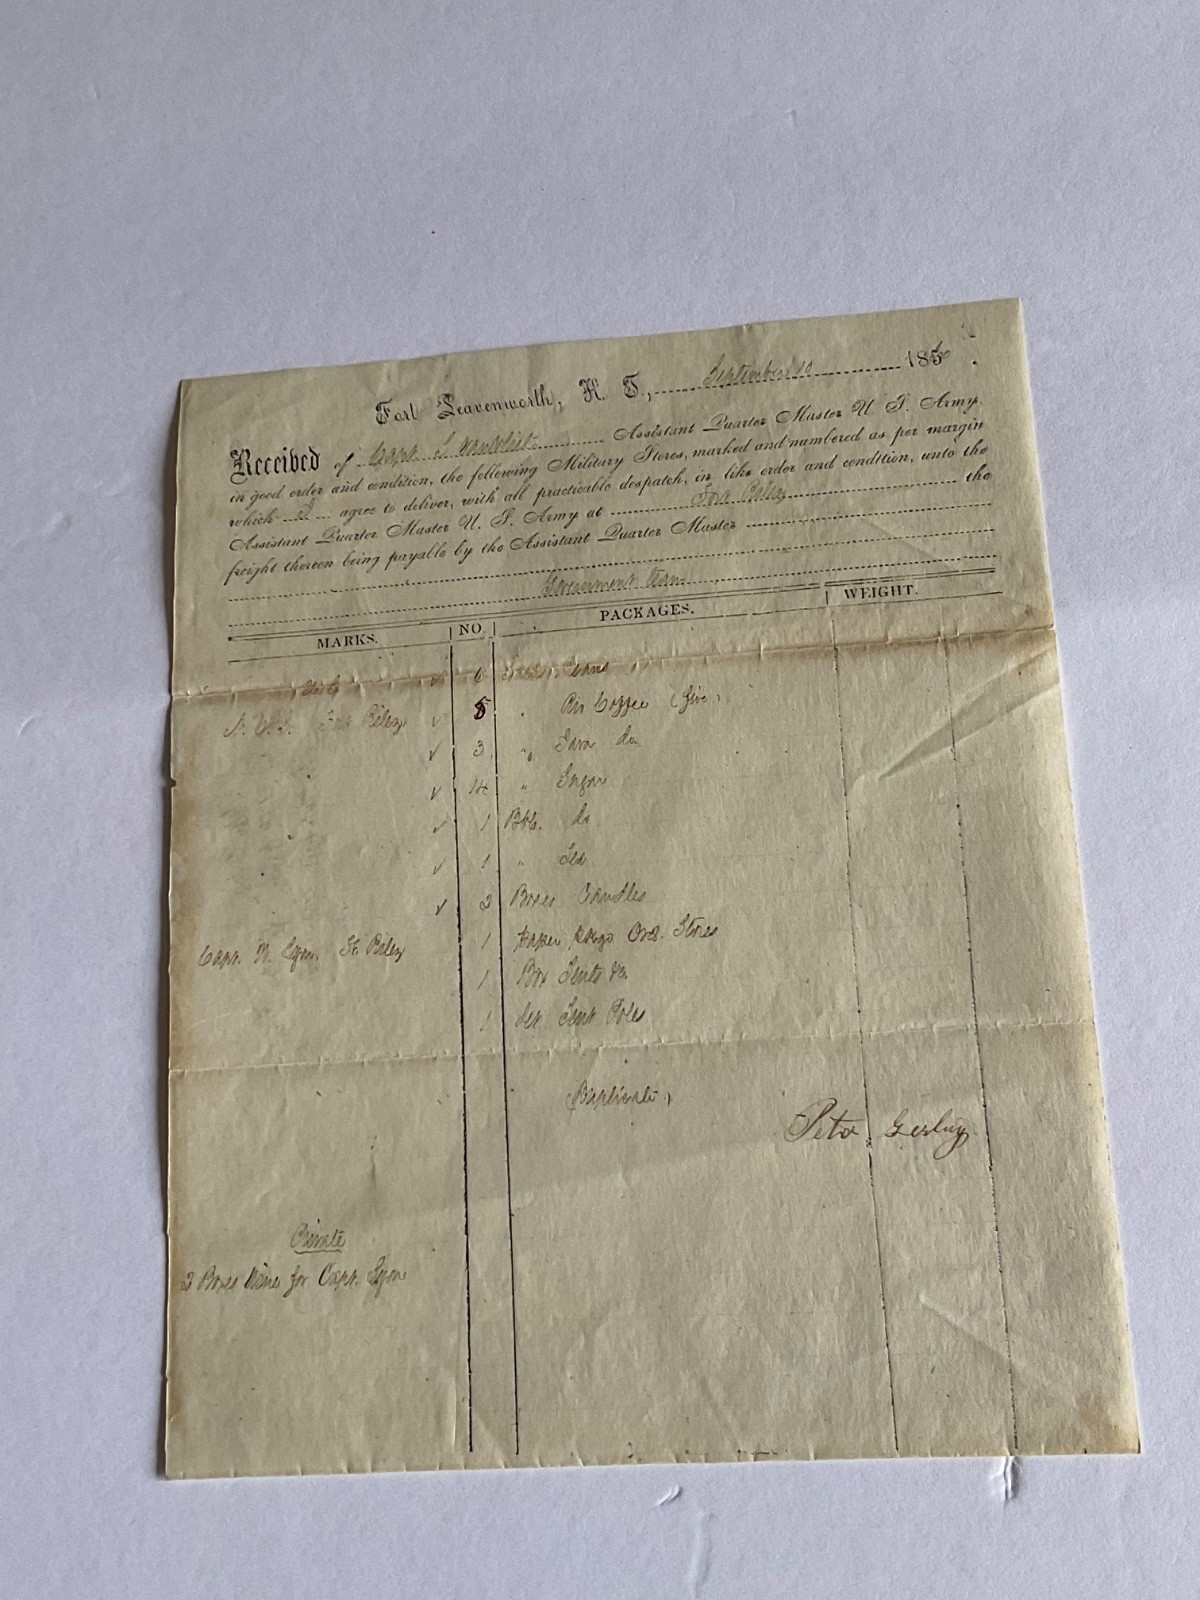 Fort Leavenworth, K. T., September 10 185
Received of Capt. S. Van Vliet Assistant Quarter Master U. S. Army
in good order and condition, the following Military Stores, marked and numbered as per margin
which I agree to deliver, with all practicable despatch, in like order and condition, unto the
Assistant Quarter Master U. S. Army at Fort Riley the
freight thereon being payable by the Assistant Quarter Master
Government
MARKS. NO. PACKAGES. WEIGHT.
6 Beans
A. C. S. Fort Riley 5 " Rio Coffee (Five)
3 " Java do
14 " Sugar
1 Bbl. do
1 " Tea
2 Boxes Candles
Capt. N. Lyon. Ft. Riley 1 Paper pkge Ord. Stores
1 Box Tents &c.
1 Set Tent Poles
(Duplicate)
Peter
Private
2 Boxes Wine for Capt. Lyon